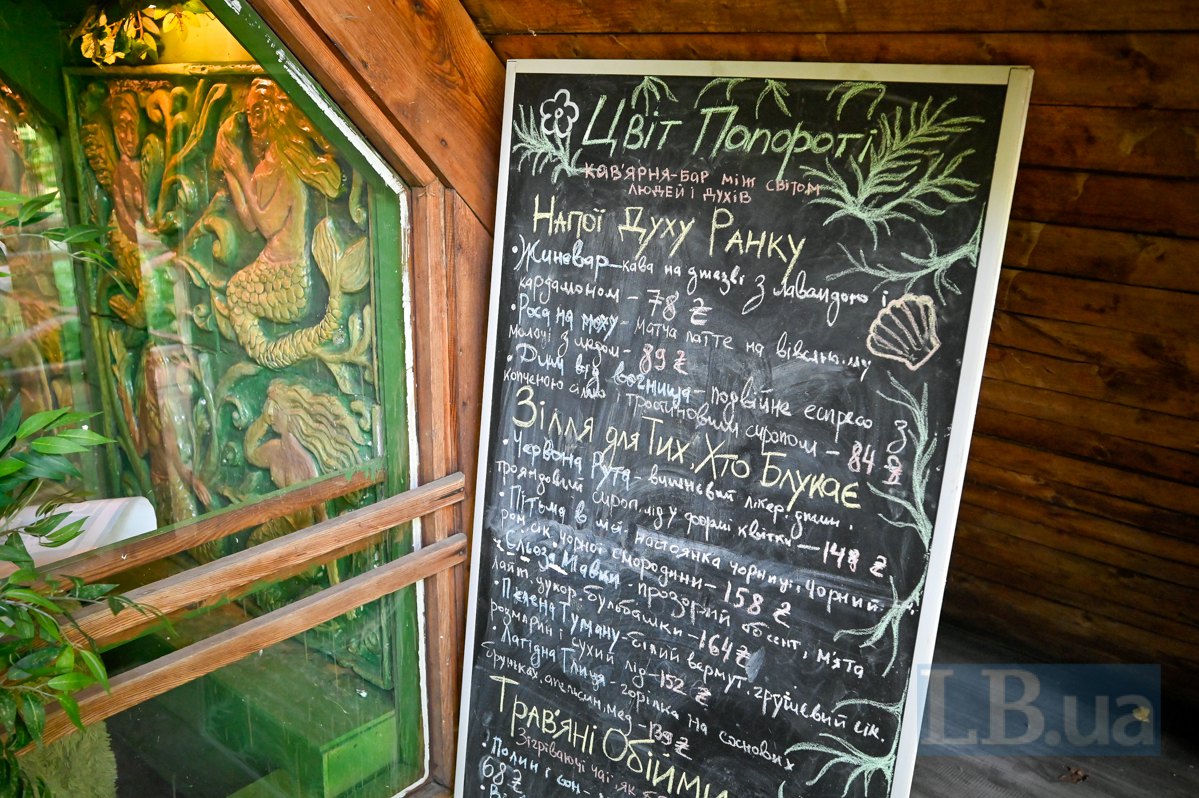 Цвіт Папороті
кав'ярня-бар між світом
людей і духів
Напої Духу Ранку
• Жиневар - кава на джазві з лавандою і
кардамоном - 78 ₴
• Роса на моху - матча латте на вівсяному
молоці з медом - 89 ₴
• Дим від вогнища - подвійне еспресо з
копченою сіллю і тростиновим сиропом - 84 ₴
Зілля для Тих, Хто Блукає
• Червона Рута - вишневий лікер, джин,
трояндовий сироп, лід у формі квітки - 148 ₴
• Пітьма в мені, настоянка чорниці, чорний
ром, сік чорної смородини - 158 ₴
• Сльоза Мавки - прозорий абсент, м'ята
лайт, цукор, бульбашки - 164 ₴
• Пелена Туману - білий вермут, грушевий сік,
розмарин і сухий лід - 152 ₴
• Лагідна Глиця - горілка на соснових
бруньках, апельсин, мед - 139 ₴
Трав'яні Обійми
Зігріваючі чаї, як
• Полин і сон -
68 ₴
LB.ua